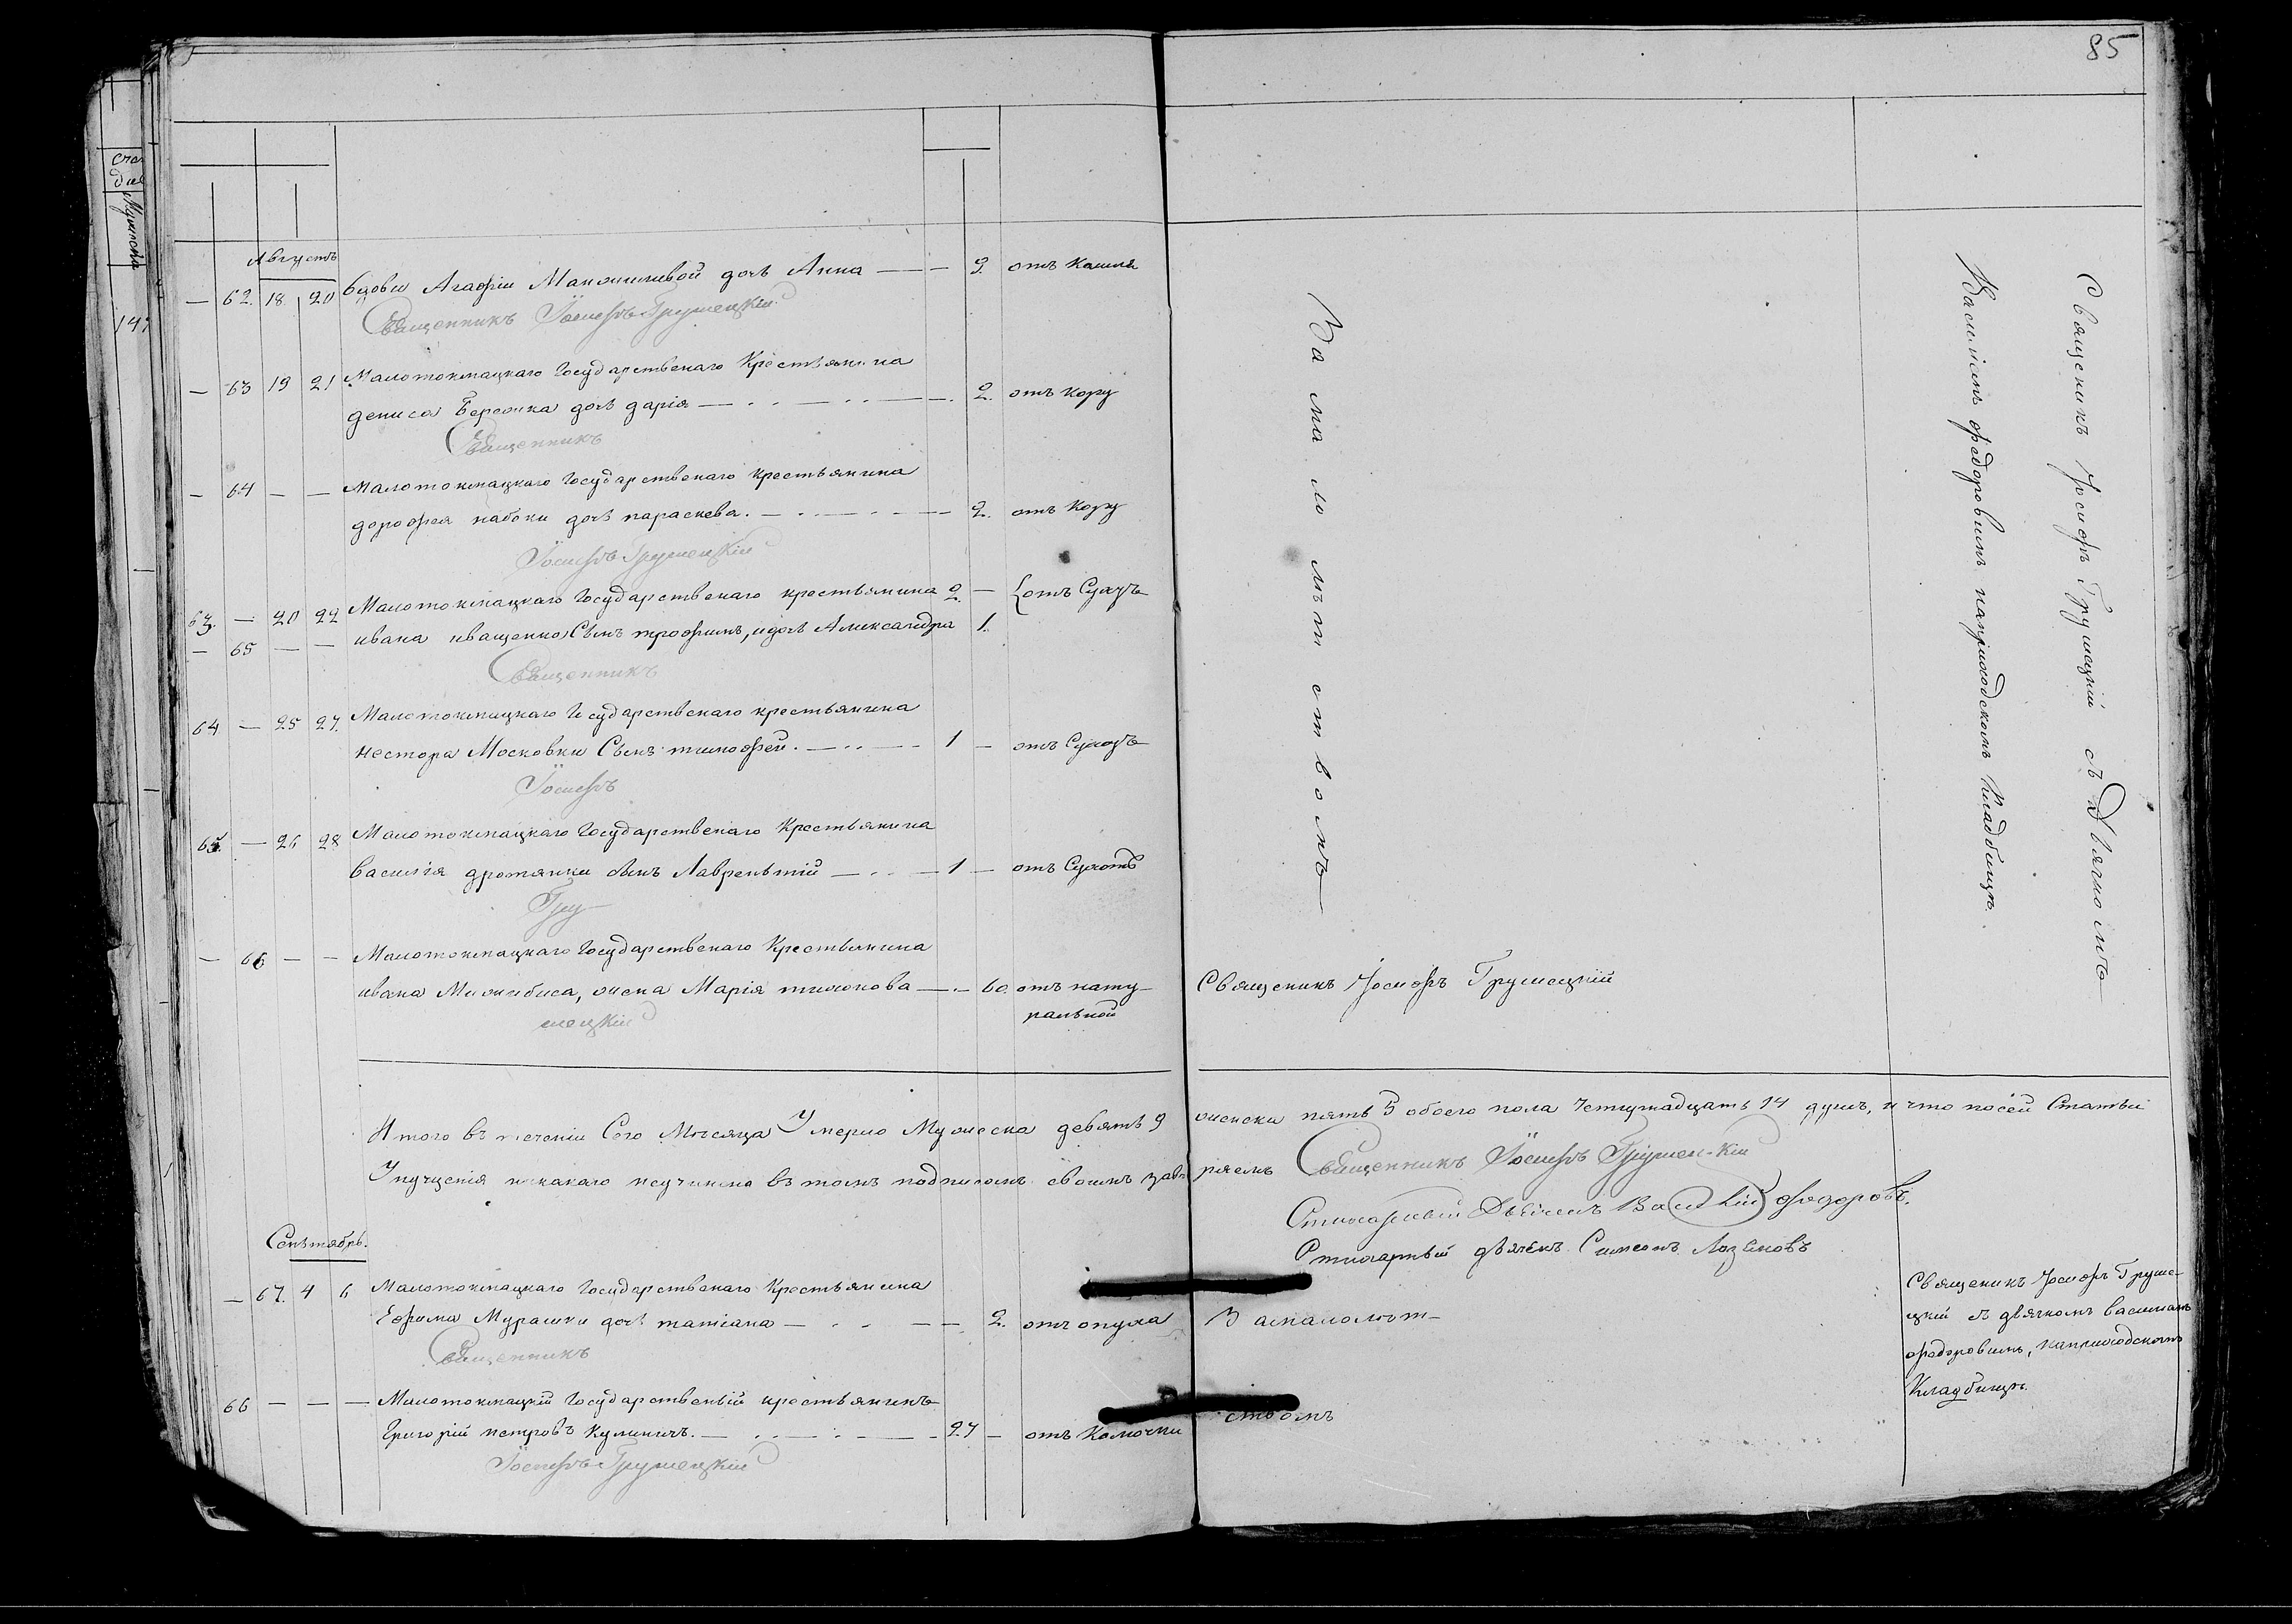 85
Августъ
— 62. 18. 20 вдовы Агафіи дочь Анна — — 9. отъ Кашля
Священникъ Іосифъ Грушецкій
— 63 19 21 Малотокмацкаго Государственаго Крестьянина
дениса дочь дарія — 2. отъ кору
Священникъ
— 64 — — Малотокмацкаго Государственаго крестьянина
дорофея набоки дочь параскева. — 2. отъ кору
Іосифъ Грушецкій
63. — 20 22 Малотокмацкаго Государственаго крестьянина 2. — отъ Сухотъ
— 65 — — ивана иващенко Сынъ трофимъ, и дочь Александра 1.
Священникъ
64 — 25 27. Малотокмацкаго Государственаго крестьянина
нестора Московки Сынъ тимофей. — 1 — отъ Сухотъ
Іосифъ
65. — 26 28 Малотокмацкаго Государственаго Крестьянина
василія дротянки сынъ Лаврентій — 1 — отъ Сухотъ
Гру—
— 66 — — Малотокмацкаго Государственаго Крестьянина
ивана жена Марія — 60. отъ нату—
ральной
шецкій
За ма ло лѣт ст во мъ
Священикъ Іосифъ Грушецкій
Священикъ Іосифъ Грушецкій съ Дьячкомъ
Василіемъ федоровымъ наприходскомъ Кладбищѣ.
Итого въ теченіи Сего Мѣсяца Умерло Мужеска девять 9 женска пять 5 обоего пола Четырнадцать 14 душъ, и что посей Статьи
Упущенія никакаго неучинено въ томъ подписомъ своимъ завѣряемъ Священникъ Іосифъ Грушецкій
Стихарный Дьячекъ Василій Федоровъ.
Стихарный дьячекъ Симеонъ
Сентябрь.
— 67. 4 6 Малотокмацкаго Государственаго Крестьянина
Ефима Мурашки дочь татіана — 2. отъ опуха Замалолѣт—
Священникъ
66 — — — Малотокмацкій Государственый крестьянинъ
Григорій петровъ Куличичъ. — 27 — отъ Колючки ствомъ
Іосифъ Грушецкій
Священикъ Іосифъ Груше—
цкій съ дьячкомъ василіемъ
федоровымъ, наприходскомъ
Кладбищѣ.